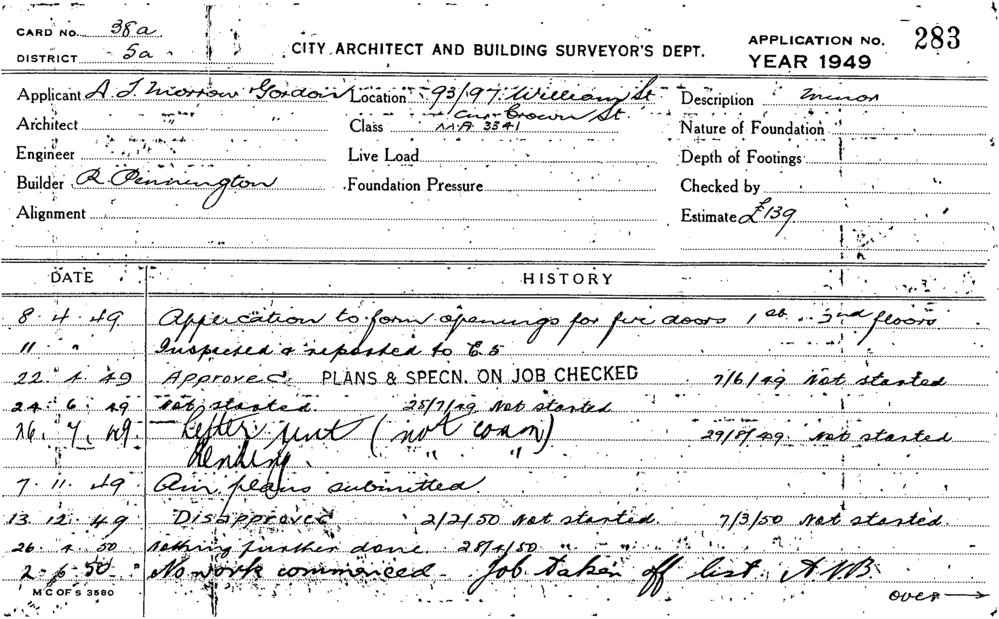 CARD NO. 38a
DISTRICT 5a
CITY ARCHITECT AND BUILDING SURVEYOR'S DEPT.
APPLICATION NO. 283
YEAR 1949
Applicant A. J. Morrow Gordon Location 93/97 William St
Cnr Crown St.
Description minor
Architect
Class MA 3341
Nature of Foundation
Engineer
Live Load
Depth of Footings
Builder R. Pennington
Foundation Pressure
Checked by
Alignment
Estimate £139
DATE HISTORY
8 4 49 Application to form openings for fire doors 1st 2nd floors
11 " Inspected & reported to E.S
22 4 49 Approved. PLANS & SPECN. ON JOB CHECKED 7/6/49 Not started
24 6 49 Not started. 25/7/49 Not started
26. 7. 49. Letter sent (not comm) 29/8/49. Not started
Pending. " "
7 11 49 Am plans submitted.
13 12 49 Disapproved 2/2/50 Not started. 7/3/50 Not started.
26 4 50 Nothing further done. 28/4/50 " " "
2 6 50 No work commenced. Job taken off list. A.V.B.
M C OF S 3580
over →